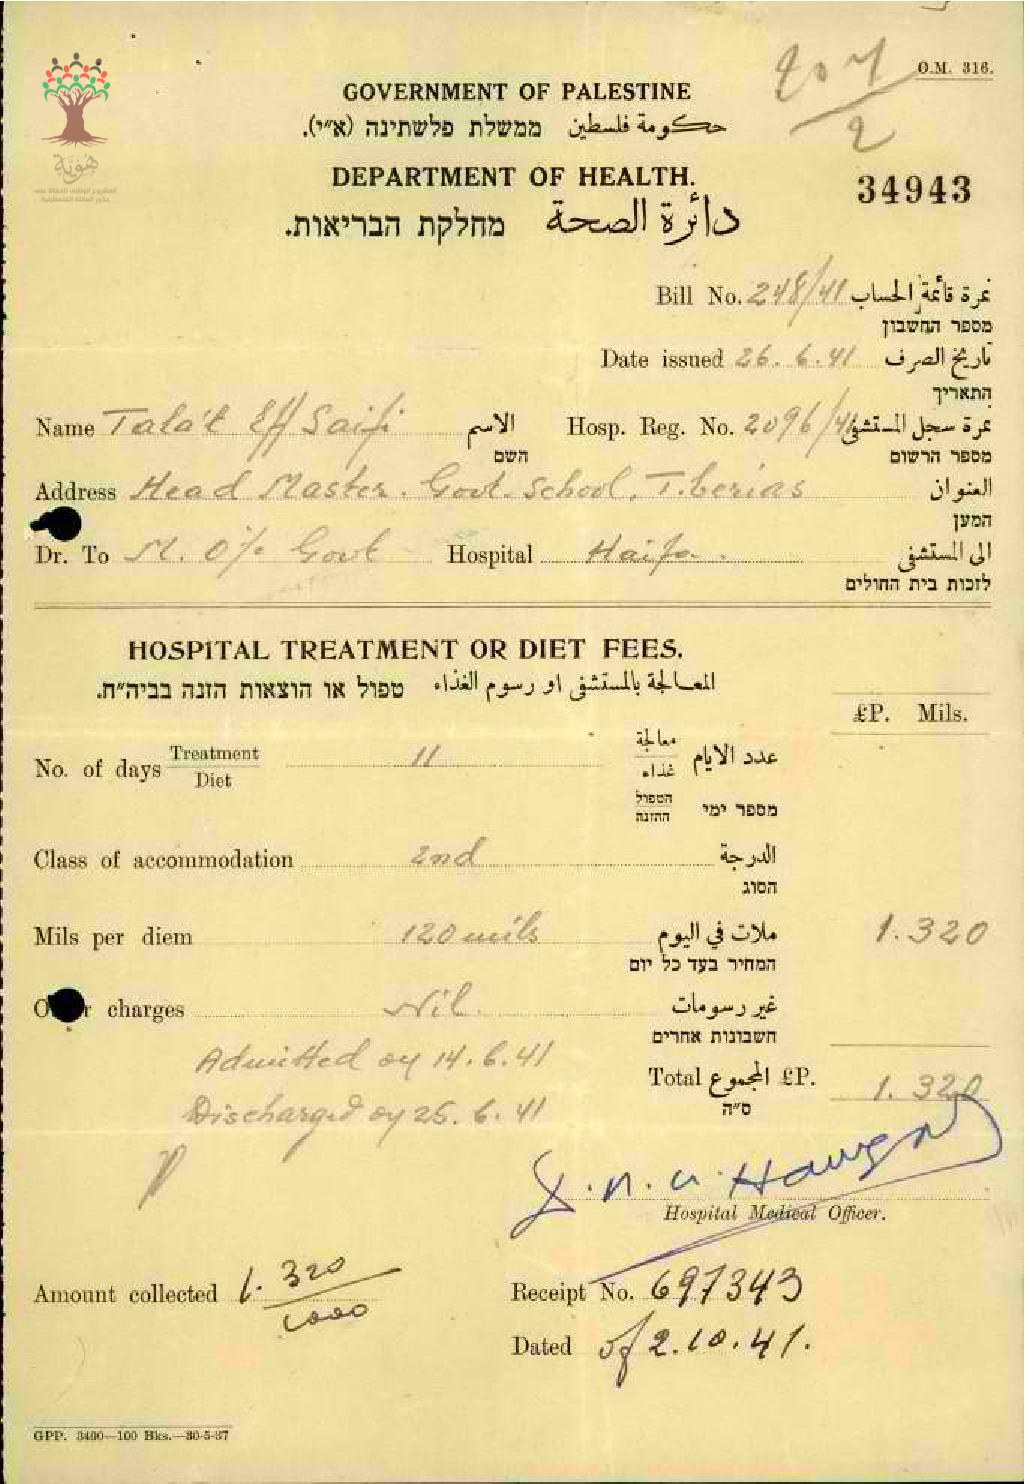 O.M. 316.
GOVERNMENT OF PALESTINE
حكومة فلسطين ממשלת פלשתינה (א״י).
DEPARTMENT OF HEALTH.
34943
دائرة الصحة מחלקת הבריאות.
هوية
المشروع الوطني للحفاظ على
جذور العائلة الفلسطينية
Bill No. 248/41 نمرة قائمة الحساب
מספר החשבון
Date issued 26.6.41 تاريخ الصرف
התאריך
Name Tala't Eff Saifi الاسم Hosp. Reg. No. 2096/41 نمرة سجل المستشفى
השם מספר הרשום
Address Head Master. Govt. School. Tiberias العنوان
המען
Dr. To M. O/c Govt Hospital Haifa. الى المستشفى
לזכות בית החולים
HOSPITAL TREATMENT OR DIET FEES.
المعالجة بالمستشفى او رسوم الغذاء טפול או הוצאות הזנה בביה״ח.
£P. Mils.
No. of days Treatment Diet 11 معالجة غذاء عدد الايام
הטפול ההזנה מספר ימי
Class of accommodation 2nd الدرجة
הסוג
Mils per diem 120 mils ملات في اليوم 1.320
המחיר בעד כל יום
charges Nil. غير رسومات
חשבונות אחרים
Admitted on 14.6.41
Total المجموع £P. 1.320
ס״ה
Discharged on 25.6.41
Hospital Medical Officer.
Amount collected 1.320/1000 Receipt No. 697343
Dated of 2.10.41.
GPP. 3400—100 Bks.—30-5-37